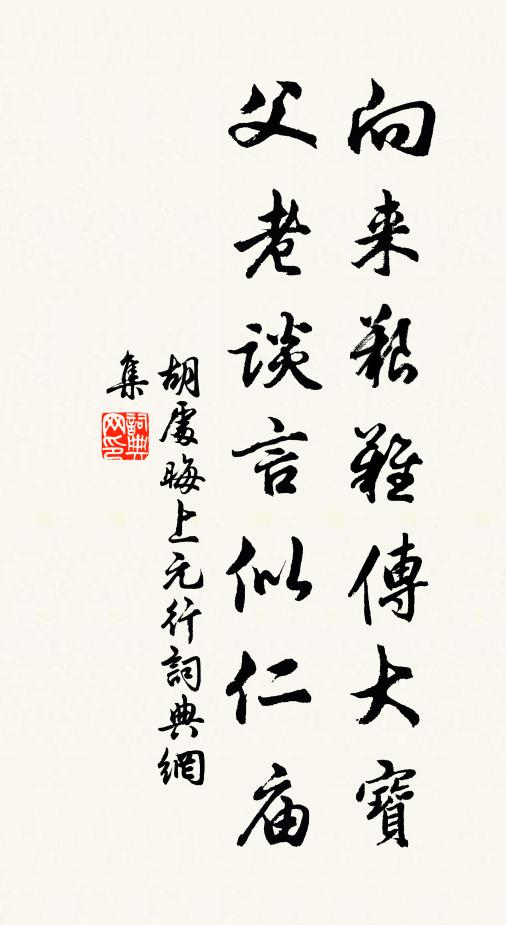 向来艱難傳大寶
父老談言似仁庙
胡處晦上元行詞典網
集
詞典
网印